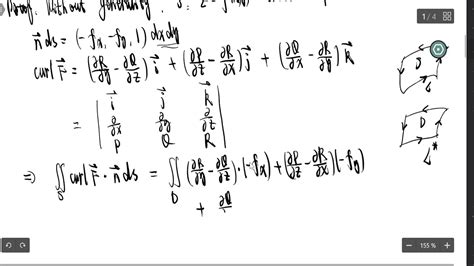 Proof. Without generality, S: z = f(x,y)
1 / 4
n⃗ ds = (-fx, -fy, 1) dxdy
curl F⃗ = (∂R/∂y - ∂Q/∂z) i⃗ + (∂P/∂z - ∂R/∂x) j⃗ + (∂Q/∂x - ∂P/∂y) k⃗
= | i⃗ j⃗ k⃗ |
| ∂/∂x ∂/∂y ∂/∂z |
| P Q R |
⇒ ∬S curl F⃗ · n⃗ ds = ∬D (∂R/∂y - ∂Q/∂z)·(-fx) + (∂P/∂z - ∂R/∂x)(-fy)
+ ∂Q/
S
D
155 %